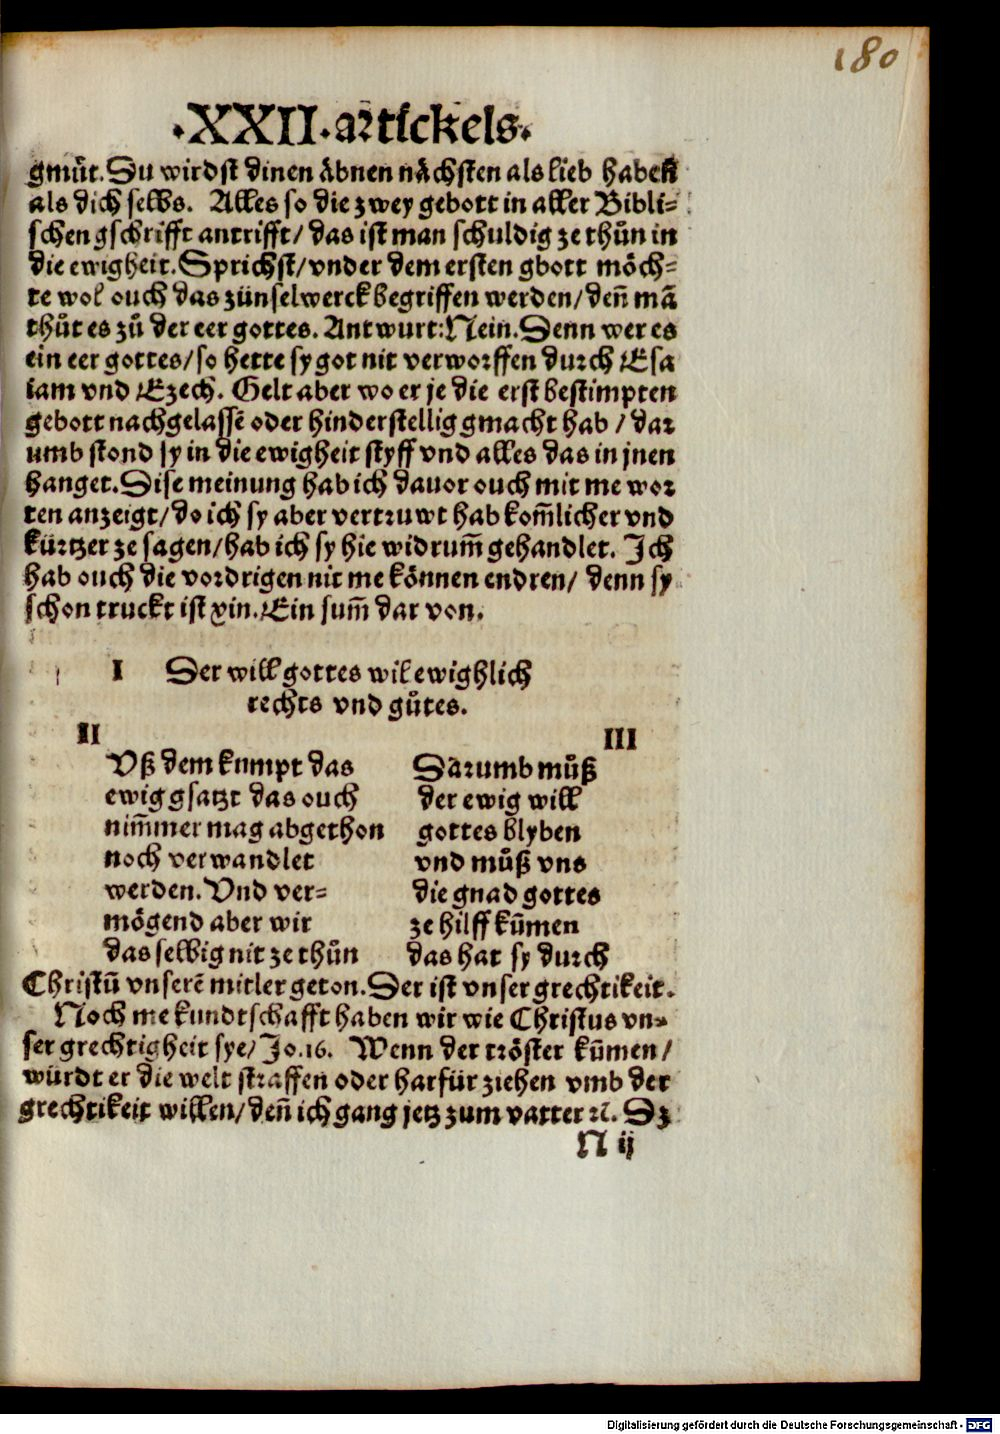 180
·XXII·artickels·
gmuͤt. Du wirdst dinen aͤbnen naͤchsten als lieb haben
als dich selbs. Alles so die zwey gebott in aller Bibli⸗
schen gschrifft antrifft/ das ist man schuldig ze thuͦn in
die ewigheit. Sprichst/ vnder dem ersten gbott moͤch⸗
te wol ouch das zünselwerck begriffen werden/ deñ mã
thuͦt es zuͦ der eer gottes. Antwurt: Nein. Denn wer es
ein eer gottes/ so hette sy got nit verworffen durch Esa
iam vnd Ezech. Gelt aber wo er je die erst bestimpten
gebott nachgelassẽ oder hinderstellig gmacht hab / dar
umb stond sy in die ewigheit styff vnd alles das in jnen
hanget. Dise meinung hab ich dauor ouch mit me wor
ten anzeigt/ do ich sy aber vertruwt hab kom̃licher vnd
kürtzer ze sagen/ hab ich sy hie widrum̃ gehandlet. Ich
hab ouch die vordrigen nit me können endren/ denn sy
schon truckt ist xin. Ein sum̃ dar von.
I Der will gottes wil ewighlich
rechts vnd guͦtes.
II
Vß dem kumpt das
ewig gsatzt das ouch
nim̃mer mag abgethon
noch verwandlet
werden. Vnd ver⸗
mögend aber wir
das selbig nit ze thuͦn
III
Darumb muͦß
der ewig will
gottes blyben
vnd muͦß vns
die gnad gottes
ze hilff kũmen
das hat sy durch
Christũ vnserẽ mitler geton. Der ist vnser grechtikeit.
Noch me kundtschafft haben wir wie Christus vn⸗
ser grechtigheit sye/ Jo. 16. Wenn der tröster kũmen/
würdt er die welt straffen oder harfür ziehen vmb der
grechtikeit willen/ deñ ich gang jetz zum vatter ꝛc. Dz
N ij
Digitalisierung gefördert durch die Deutsche Forschungsgemeinschaft - DFG